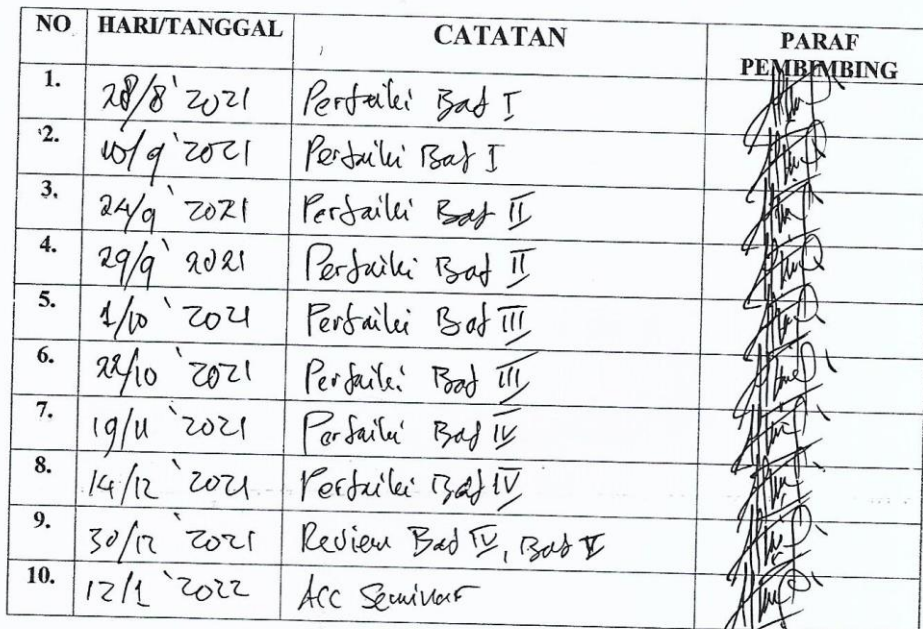 NO HARI/TANGGAL CATATAN PARAF PEMBIMBING
1. 28/8 ' 2021 Perbaiki Bab I
2. 10/9 ' 2021 Perbaiki Bab I
3. 24/9 ' 2021 Perbaiki Bab II
4. 29/9 ' 2021 Perbaiki Bab II
5. 1/10 ' 2021 Perbaiki Bab III
6. 22/10 ' 2021 Perbaiki Bab III
7. 19/11 ' 2021 Perbaiki Bab IV
8. 14/12 ' 2021 Perbaiki Bab IV
9. 30/12 ' 2021 Review Bab IV, Bab V
10. 12/1 ' 2022 Acc Seminar